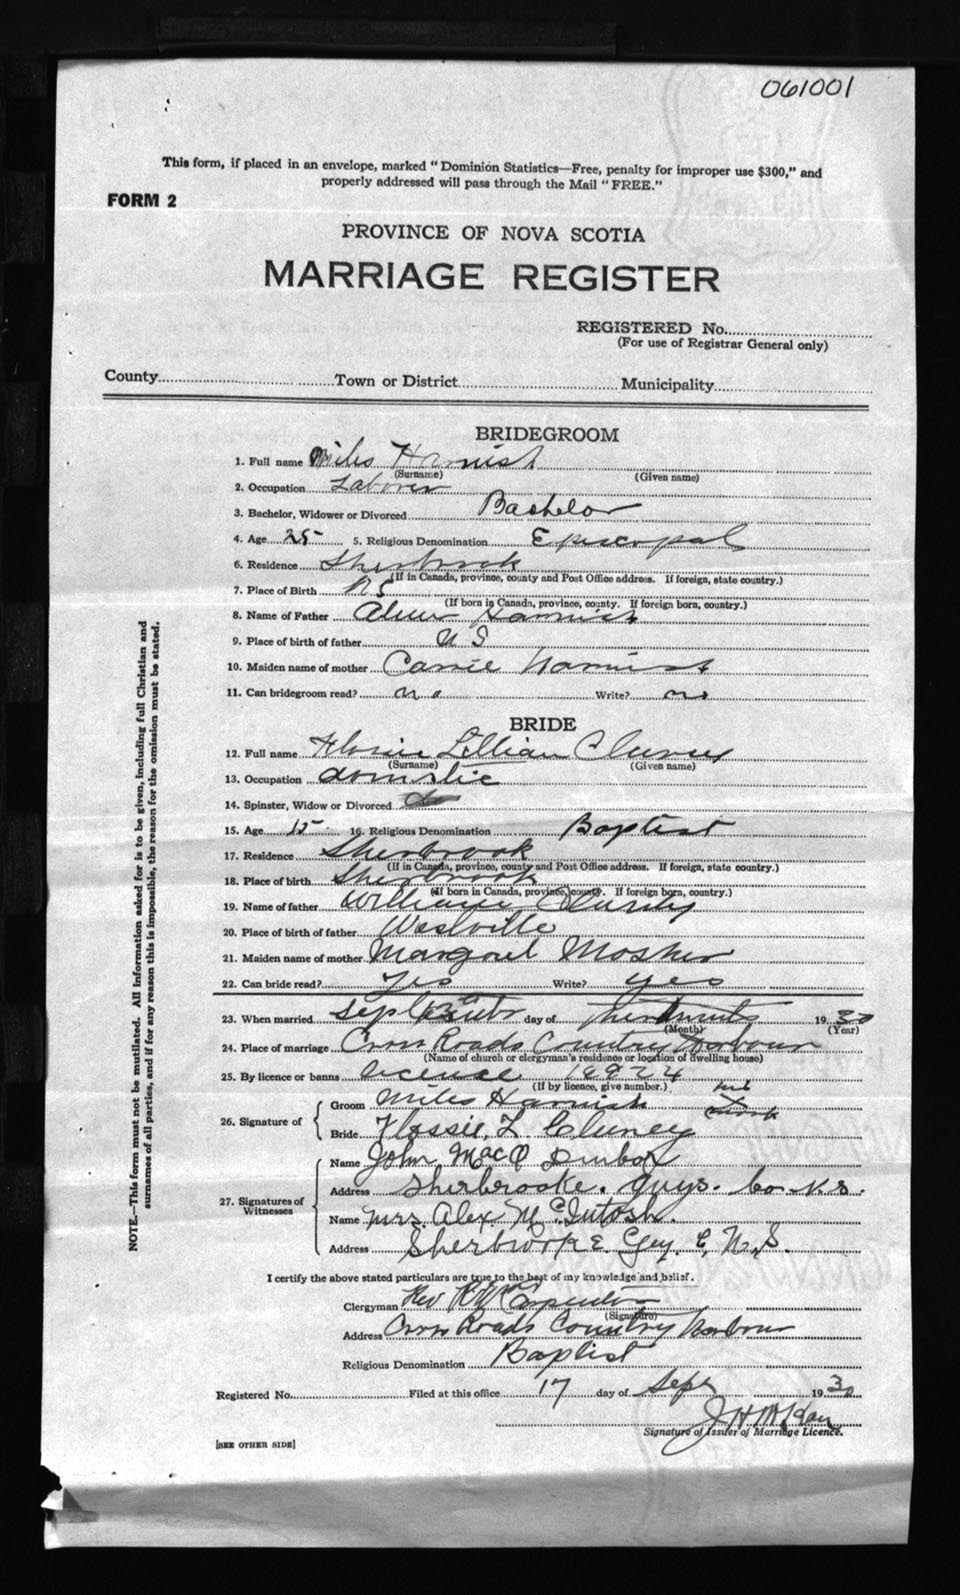 061001
This form, if placed in an envelope, marked "Dominion Statistics—Free, penalty for improper use $300," and
properly addressed will pass through the Mail "FREE."
FORM 2
PROVINCE OF NOVA SCOTIA
MARRIAGE REGISTER
REGISTERED No.
(For use of Registrar General only)
County Town or District Municipality
BRIDEGROOM
1. Full name Miles Harnish
(Surname) (Given name)
2. Occupation Laborer
3. Bachelor, Widower or Divorced Bachelor
4. Age 25 5. Religious Denomination Episcopal
6. Residence Sherbrook
(If in Canada, province, county and Post Office address. If foreign, state country.)
7. Place of Birth NS
(If born in Canada, province, county. If foreign born, country.)
8. Name of Father Harnish
9. Place of birth of father
10. Maiden name of mother Carrie Harnish
11. Can bridegroom read? no Write? no
BRIDE
12. Full name Lillian Cluney
(Surname) (Given name)
13. Occupation domestic
14. Spinster, Widow or Divorced
15. Age 15 16. Religious Denomination Baptist
17. Residence Sherbrook
(If in Canada, province, county and Post Office address. If foreign, state country.)
18. Place of birth Sherbrook
(If born in Canada, province, county. If foreign born, country.)
19. Name of father William Cluney
20. Place of birth of father Westville
21. Maiden name of mother Margaret Mosher
22. Can bride read? Yes Write? yes
23. When married September day of 1930
(Month) (Year)
24. Place of marriage Cross Roads Country Harbour
(Name of church or clergyman's residence or location of dwelling house)
25. By licence or banns license 19924
(If by licence, give number.)
26. Signature of
Groom Miles Harnish his X mark
Bride Flossie L Cluney
27. Signatures of Witnesses
Name John MacD Dunbar
Address Sherbrooke. Guys. Co N.S.
Name Mrs. Alex. McIntosh.
Address Sherbrooke Guy. C. N.S.
I certify the above stated particulars are true to the best of my knowledge and belief.
Clergyman Rev Carpenter
(Signature)
Address Cross Roads Country Harbour
Religious Denomination Baptist
Registered No. Filed at this office 17 day of Sept 1930
J H McKay
Signature of Issuer of Marriage Licence.
[SEE OTHER SIDE]
NOTE.—This form must not be mutilated. All information asked for is to be given, including full Christian and
surnames of all parties, and if for any reason this is impossible, the reason for the omission must be stated.